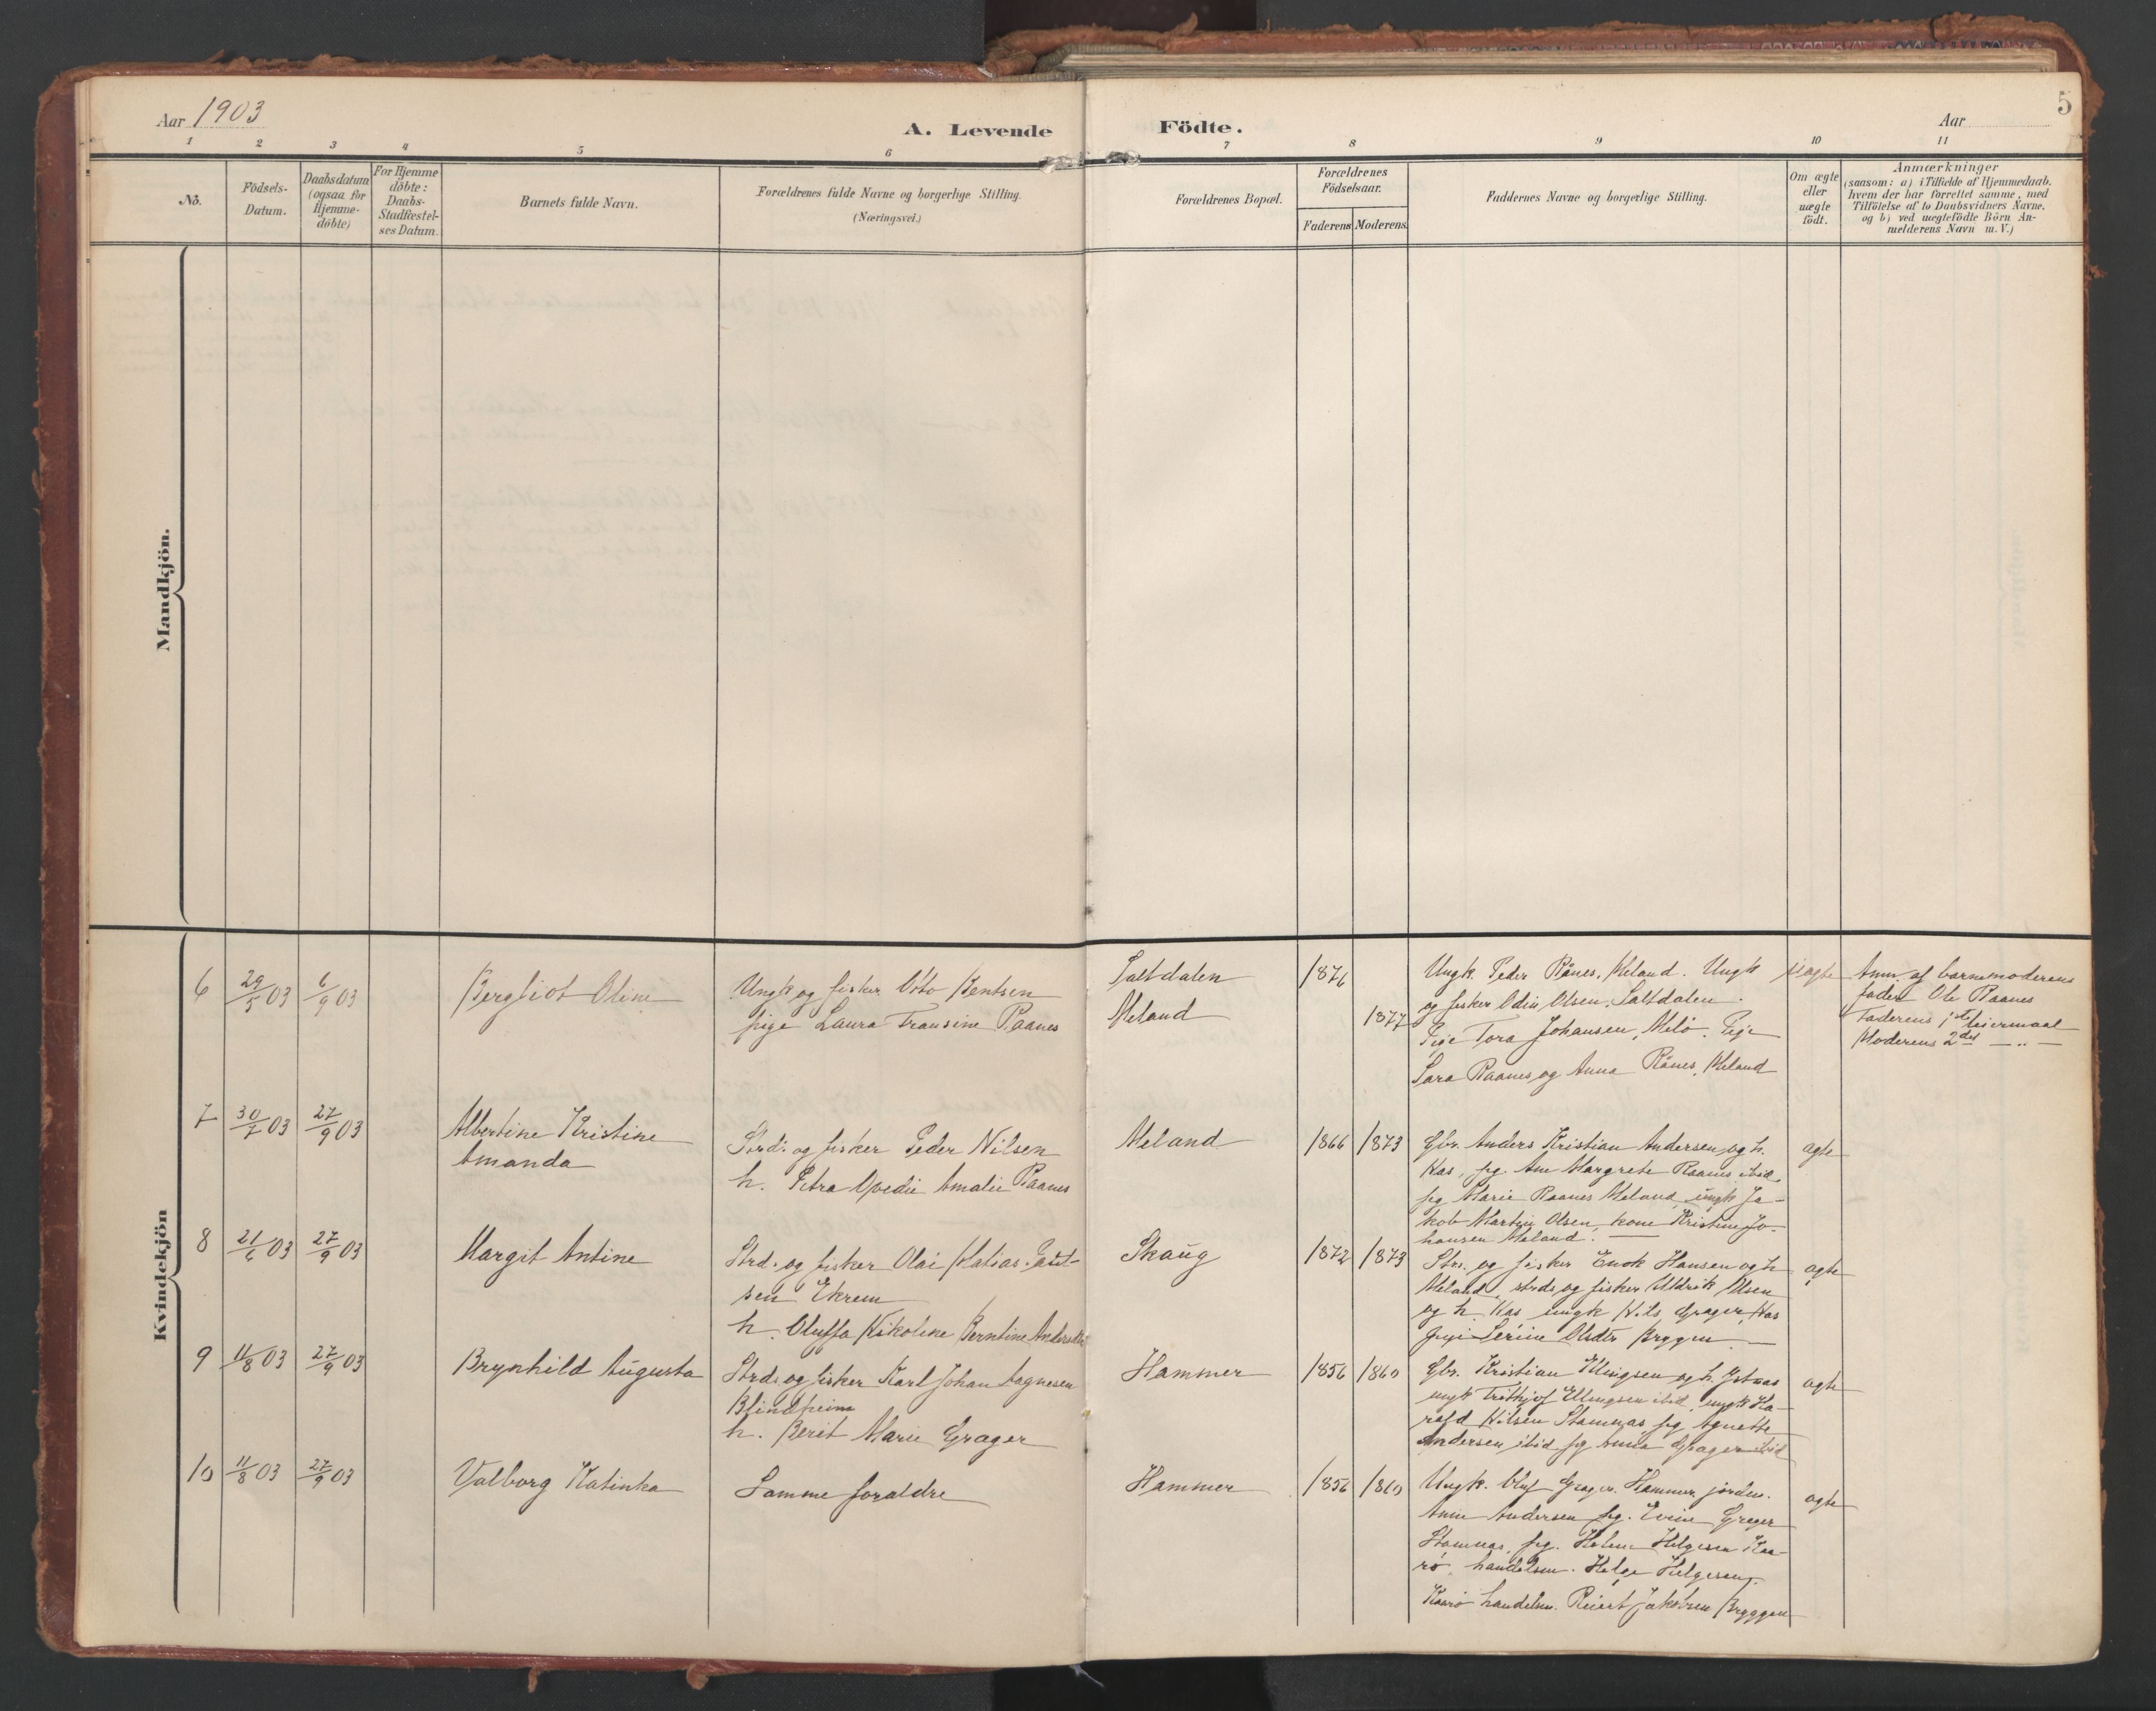 Aar 1903
A. Levende Födte.
Aar
5
1 2 3 4 5 6 7 8 9 10 11
No.
Födsels-
Datum.
Daabsdatum
(ogsaa for
Hjemme-
döbte)
For Hjemme
döbte:
Daabs-
Stadfæstel-
ses Datum.
Barnets fulde Navn.
Forældrenes fulde Navne og borgerlige Stilling.
(Næringsvei.)
Forældrenes Bopæl.
Forældrenes
Födselsaar.
Faderens Moderens
Faddernes Navne og borgerlige Stilling.
Om ægte
eller
uægte
födt.
Anmærkninger
(saasom: a) i Tilfælde af Hjemmedaab.
hvem der har forrettet samme, med
Tilföielse af to Daabsvidners Navne.
og b) ved uægtefödte Börn An-
melderens Navn m. V.)
Mandkjön.
Kvindekjön
6
29/5 03
6/9 03
Bergliot Oline
Ungk og fisker Otto Bentsen
pige Laura Fransine Raanes
Saltdalen
Meland
1876
1877
Ungk. Peder Rånes, Meland. Ungk
og fisker Odin Olsen, Saltdalen.
Pige Tora Johansen, Melö. Pige
Sara Raanes og Anna Rånes, Meland
uagte
Anm. af barnemoderens
fader Ole Raanes
Faderens 1ste leiermaal
Moderens 2det — " —
7
30/7 03
27/9 03
Albertine Kristine
Amanda
Strd. og fisker Peder Nilsen
h. Petra Amalie Raanes
Meland
1866
1873
Gbr. Anders Kristian Andersen og h.
Kas, pg. Ane Margrete Raanes ibid,
pg Marie Raanes Meland, ungk Ja-
kob Martin Olsen, kone Kristine Jo-
hansen Meland.
agte
8
21/6 03
27/9 03
Margit Antine
Strd. og fisker Olai Matias
sen Ekrem
h. Oluffa Nikoline Berntine
Skaug
1872
1873
Str. og fisker Enok Hansen og h
Meland, strds og fisker Uldrik Olsen
og h. Kas ungk Nils Grager, Kas
pige Bryggen
agte
9
11/8 03
27/9 03
Brynhild Augusta
Strd. og fisker Karl Johan Aagnesen
Blindheim
h. Berit Marie Grager
Hammer
1856
1860
Gbr. Kristian Ellingsen og h.
ungk Frithjof Ellingsen ibid, ungk Ha-
rald Nilsen Stamnas pg Agnette
Andersen ibid pg Anna Grager ibid
agte
10
11/8 03
27/9 03
Valborg Katinka
Samme foraldre
Hammer
1856
1860
Ungk. Oluf Grager, Hammer, jordm.
Anne Andersen pg. Grager
Stamnas, pg. Helene Helgesen Kaa-
rö, handelsm. Helge Helgesen,
Kaarö handelsm. Jakobsen Bryggen
agte